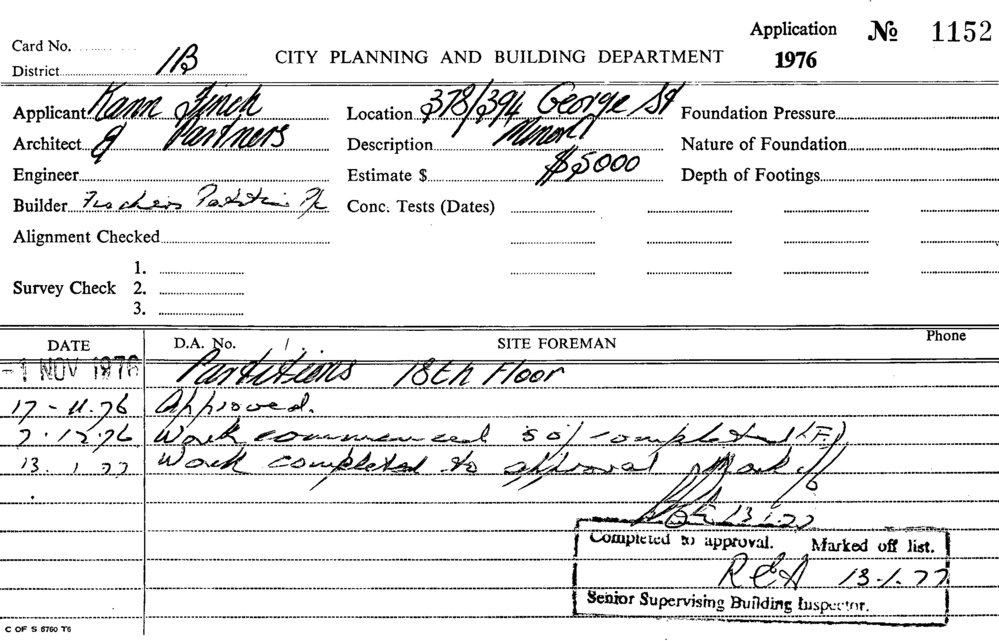 Application No 1152
Card No.
CITY PLANNING AND BUILDING DEPARTMENT 1976
District 1B
Applicant Kann Finch Location 378/394 George St Foundation Pressure
Architect & Partners Description Minor Nature of Foundation
Engineer Estimate $ $5000 Depth of Footings
Builder Conc. Tests (Dates)
Alignment Checked
1.
Survey Check 2.
3.
DATE D.A. No. SITE FOREMAN Phone
-1 NOV 1976 Partitions 18th Floor
17-11.76 Approved.
7.12.76 Work commenced 50% completed
13.1.77 Work completed to approval Mark off
13.1.77
Completed to approval. Marked off list.
13.1.77
Senior Supervising Building Inspector.
C OF S 6760 T6